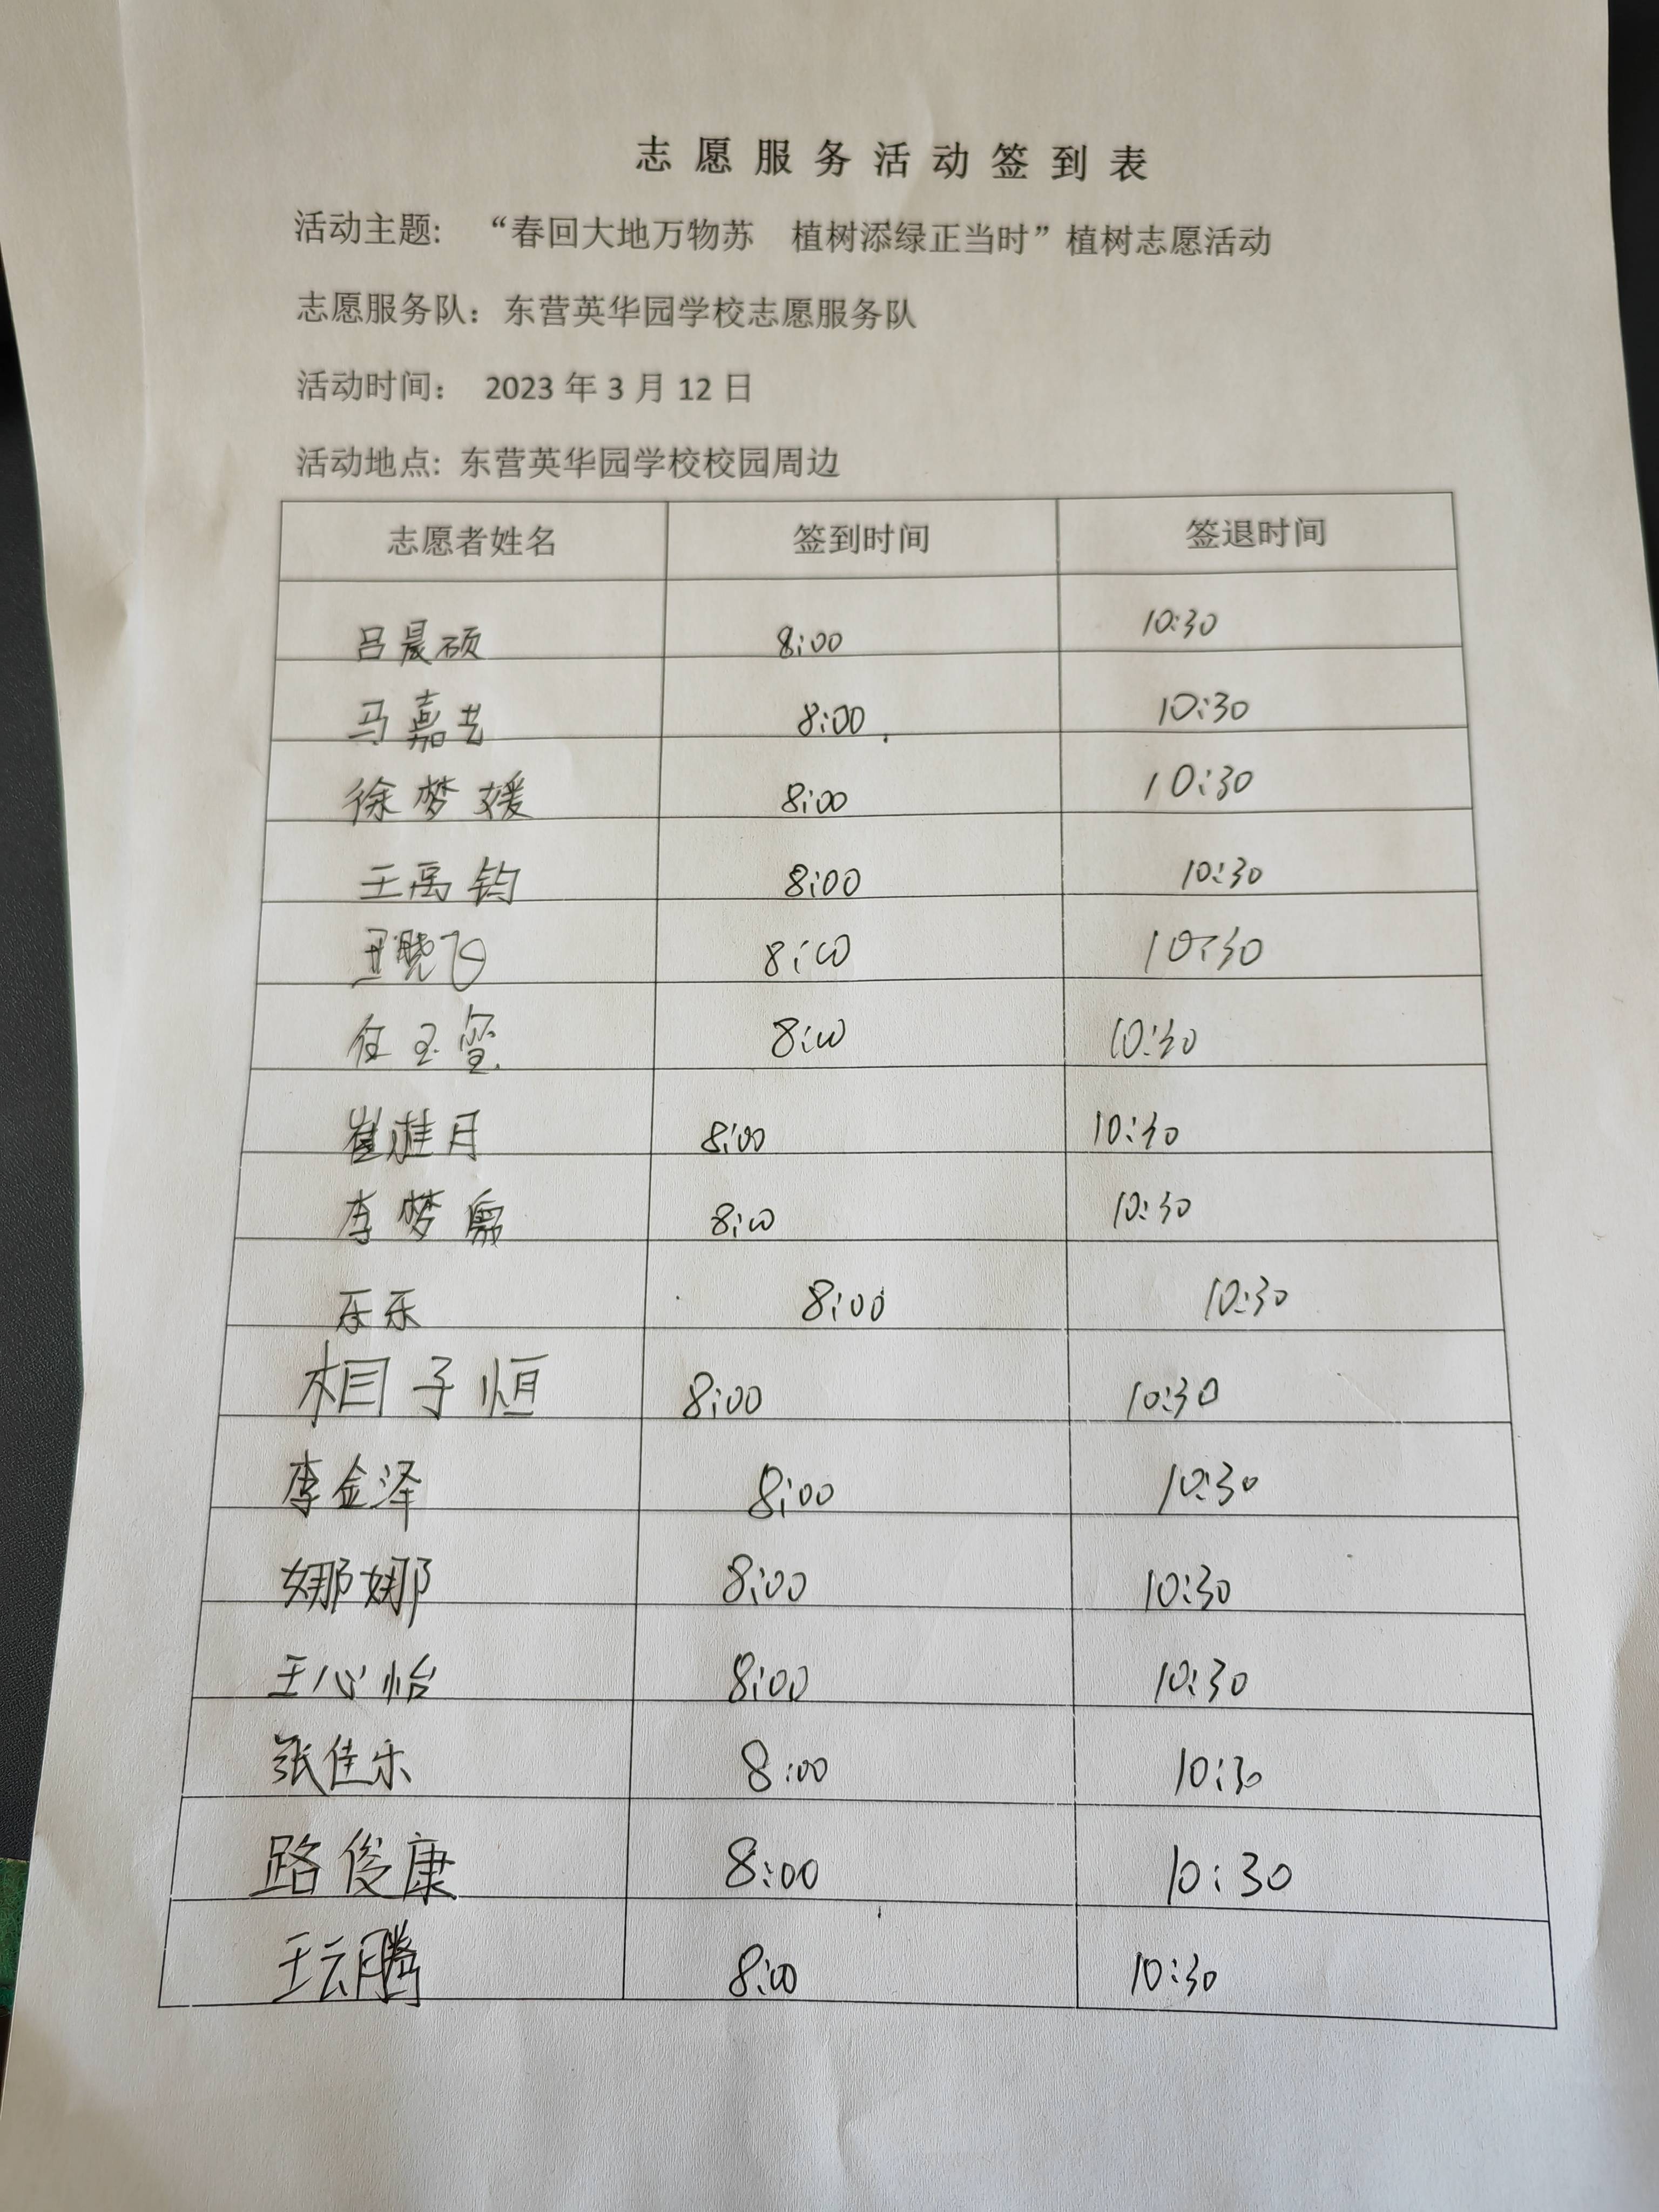 志愿服务活动签到表
活动主题: “春回大地万物苏 植树添绿正当时”植树志愿活动
志愿服务队: 东营英华园学校志愿服务队
活动时间: 2023 年 3 月 12 日
活动地点: 东营英华园学校校园周边
志愿者姓名 签到时间 签退时间
吕晨硕 8:00 10:30
马嘉艺 8:00 10:30
徐梦媛 8:00 10:30
王禹钧 8:00 10:30
王晓飞 8:00 10:30
任玉玺 8:00 10:30
崔桂月 8:00 10:30
李梦 8:00 10:30
乐乐 8:00 10:30
相子恒 8:00 10:30
李金泽 8:00 10:30
娜娜 8:00 10:30
王心怡 8:00 10:30
张佳乐 8:00 10:30
路俊康 8:00 10:30
王云腾 8:00 10:30